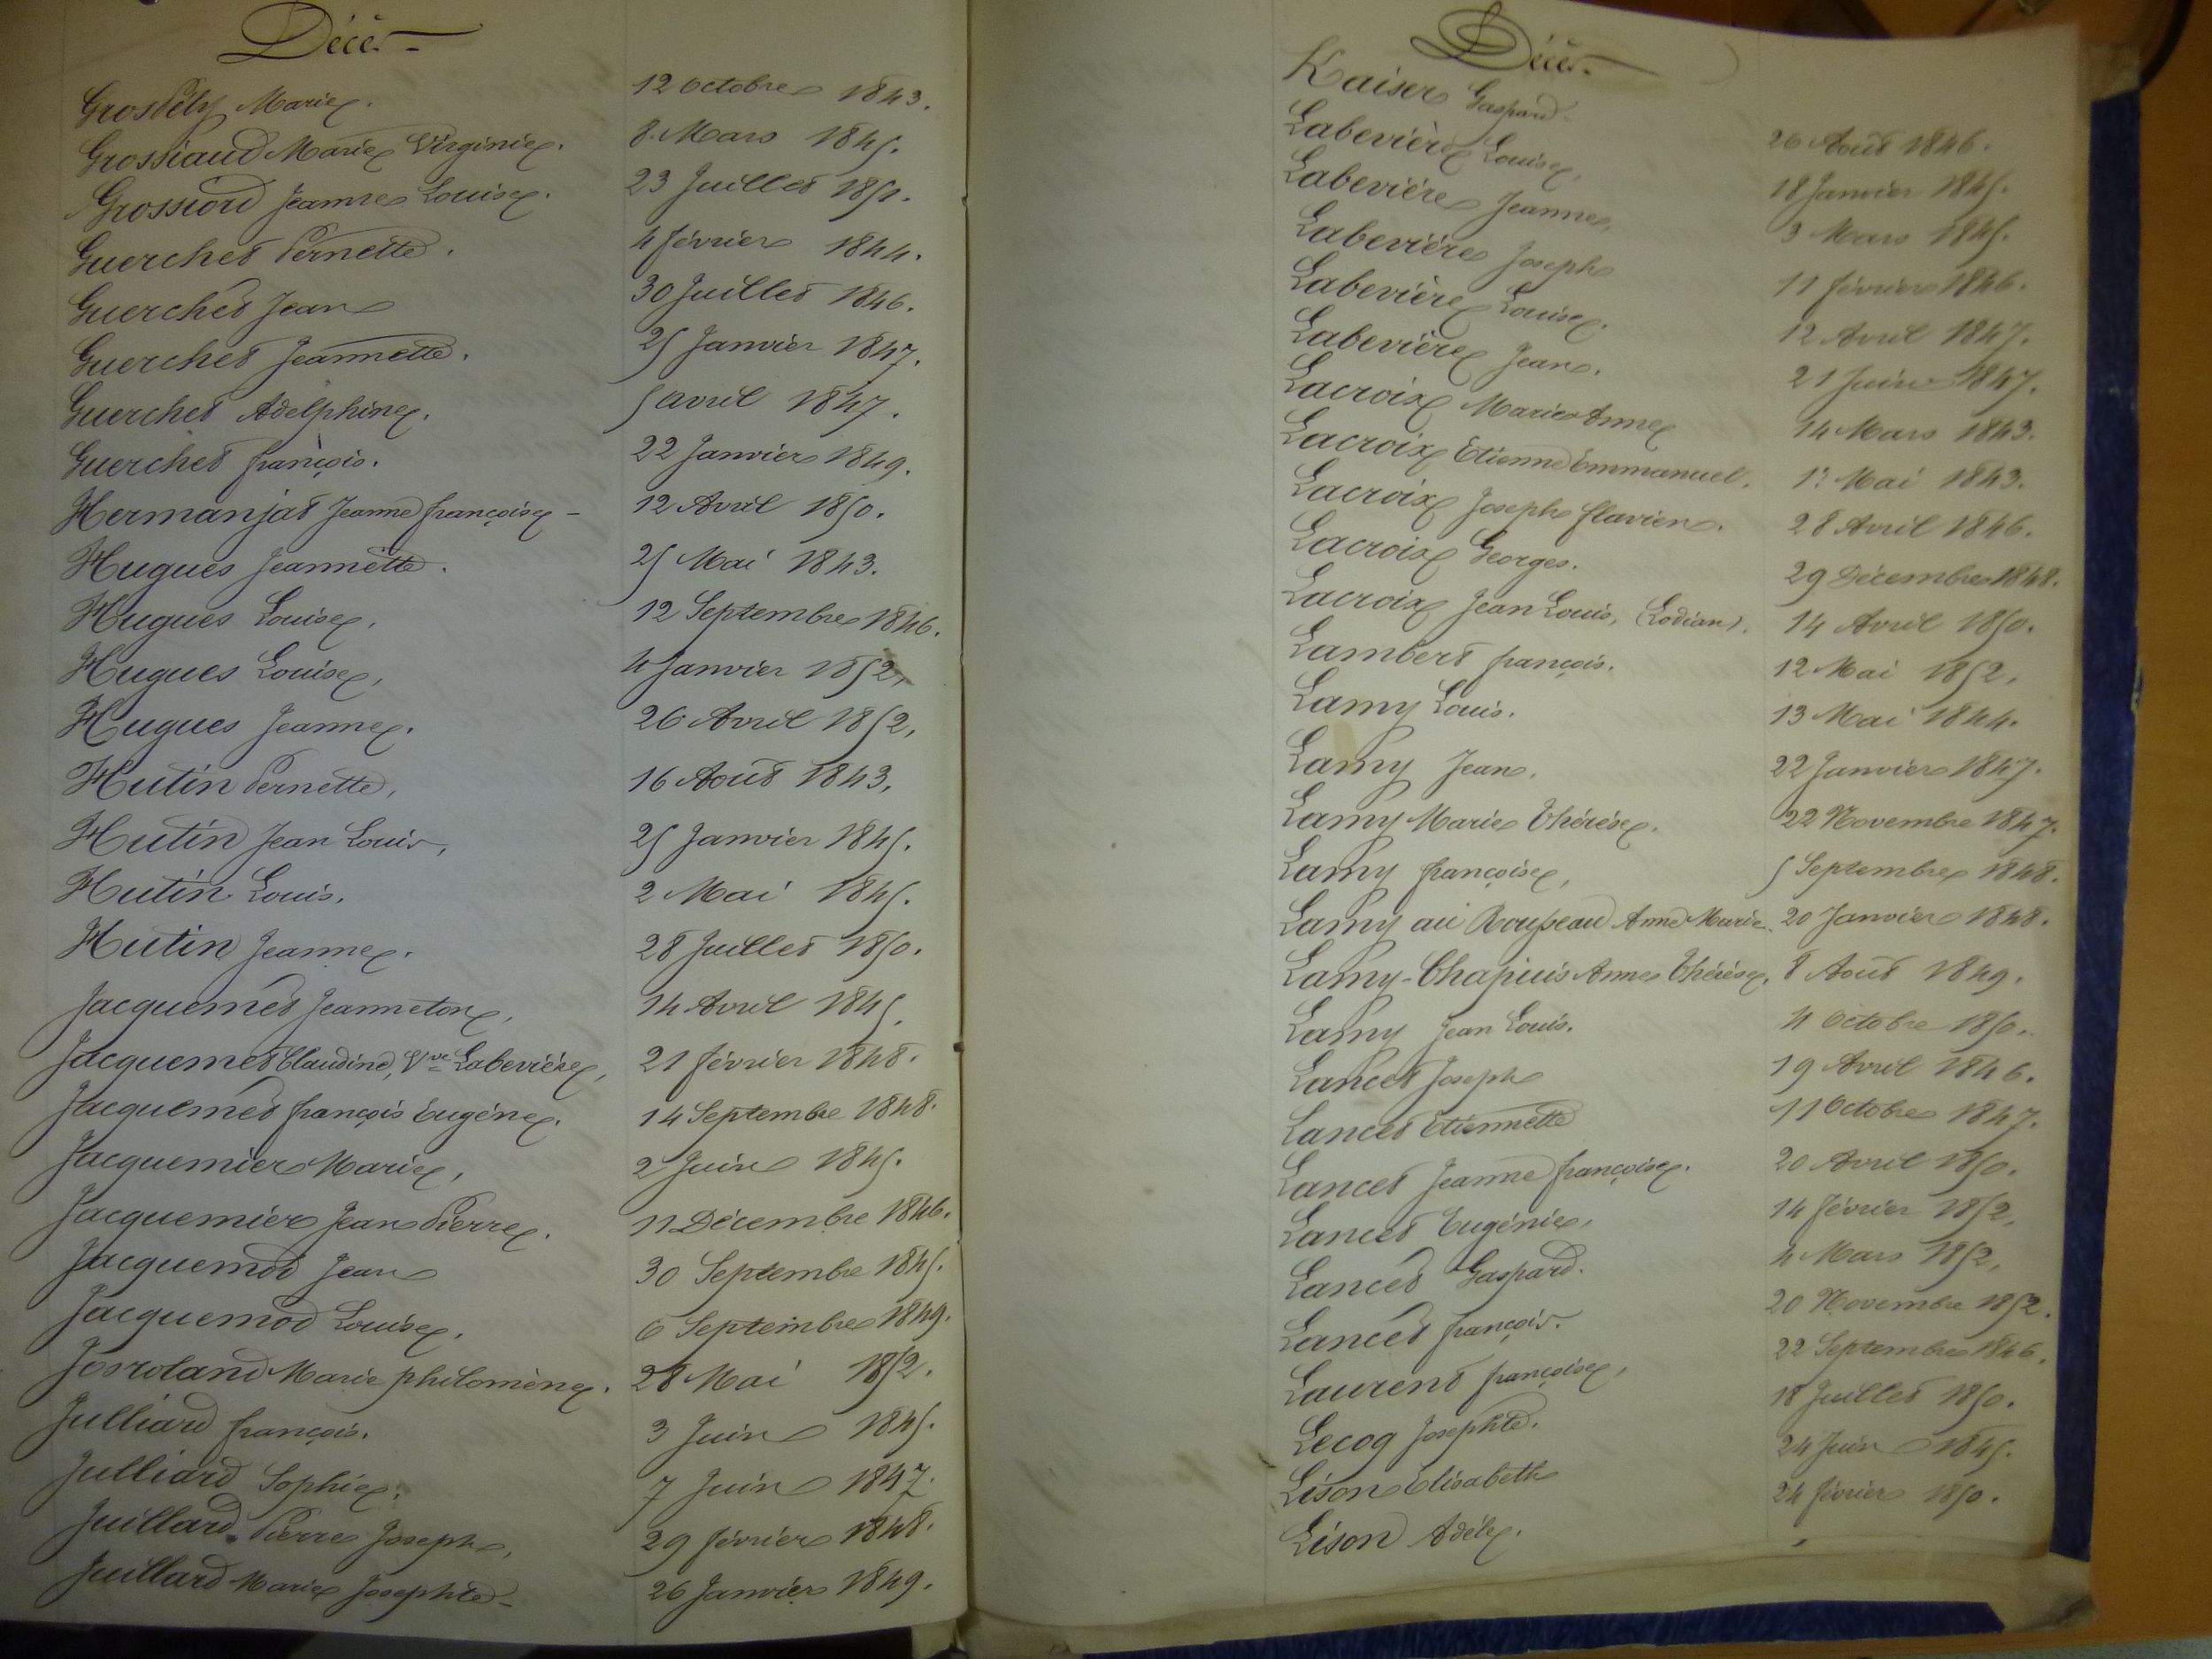 Décès
Marie. 12 octobre 1843.
Grossiaud Marie Virginie. 8 Mars 1845.
Grossiord Jeanne Louise. 23 Juillet 1851.
Guerchet Pernette. 4 février 1844.
Guerchet Jean 30 Juillet 1846.
Guerchet Jeannette. 25 Janvier 1847.
Guerchet Adelphine. 5 avril 1847.
Guerchet françois. 22 Janvier 1849.
Hermanjat Jeanne françoise - 12 Avril 1850.
Hugues Jeannette. 25 Mai 1843.
Hugues Louise, 12 Septembre 1846.
Hugues Louise, 4 Janvier 1852,
Hugues Jeanne. 26 Avril 1852,
Hutin Pernette, 16 Août 1843,
Hutin Jean Louis, 25 Janvier 1845.
Hutin Louis. 2 Mai 1845.
Hutin Jeanne. 28 Juillet 1850.
Jacquemet Jeanneton, 14 Avril 1845.
Jacquemet Claudine, Vve Labevière, 21 février 1848.
Jacquemet françois Eugène. 14 Septembre 1848.
Jacquemier Marie, 2 Juin 1845.
Jacquemier Jean Pierre. 11 Décembre 1846.
Jacquemod Jean 30 Septembre 1845.
Jacquemod Louise. 6 Septembre 1849.
Josroland Marie philomène. 28 Mai 1852.
Julliard françois. 3 Juin 1845.
Julliard Sophie. 7 Juin 1847.
Juillard Pierre Joseph, 29 février 1848.
Juillard Marie Josephte - 26 Janvier 1849.
Décès
Kaiser Gaspard 26 Août 1846.
Labevière Louise, 18 Janvier 1845.
Labevière Jeanne, 3 Mars 1845.
Labevière Joseph 11 février 1846.
Labevière Louise. 12 Avril 1847.
Labevière Jean. 21 Juin 1847.
Lacroix Marie Anne 14 Mars 1843.
Lacroix Etienne Emmanuel. 1er Mai 1843.
Lacroix Joseph flavien. 28 Avril 1846.
Lacroix Georges. 29 Décembre 1848.
Lacroix Jean Louis, (Lodian). 14 Avril 1850.
Lambert françois. 12 Mai 1852,
Lamy Louis. 13 Mai 1844.
Lamy Jean. 22 Janvier 1847.
Lamy Marie Thérèse. 22 Novembre 1847.
Lamy françoise, 5 Septembre 1848.
Lamy au Rousseau Anne Marie. 20 Janvier 1848.
Lamy-Chapuis Anne Thérèse. 8 Août 1849.
Lamy Jean Louis. 4 Octobre 1850.
Lancet Joseph 19 Avril 1846.
Lancet Etiennette 11 Octobre 1847.
Lancet Jeanne françoise. 20 Avril 1850.
Lancet Eugénie, 14 février 1852,
Lancet Gaspard. 4 Mars 1852,
Lancet françois. 20 Novembre 1852.
Laurent françoise, 22 Septembre 1846.
Lecoq Josephte. 18 Juillet 1850.
Lison Elisabeth 24 Juin 1845.
Lison Adèle. 24 février 1850.